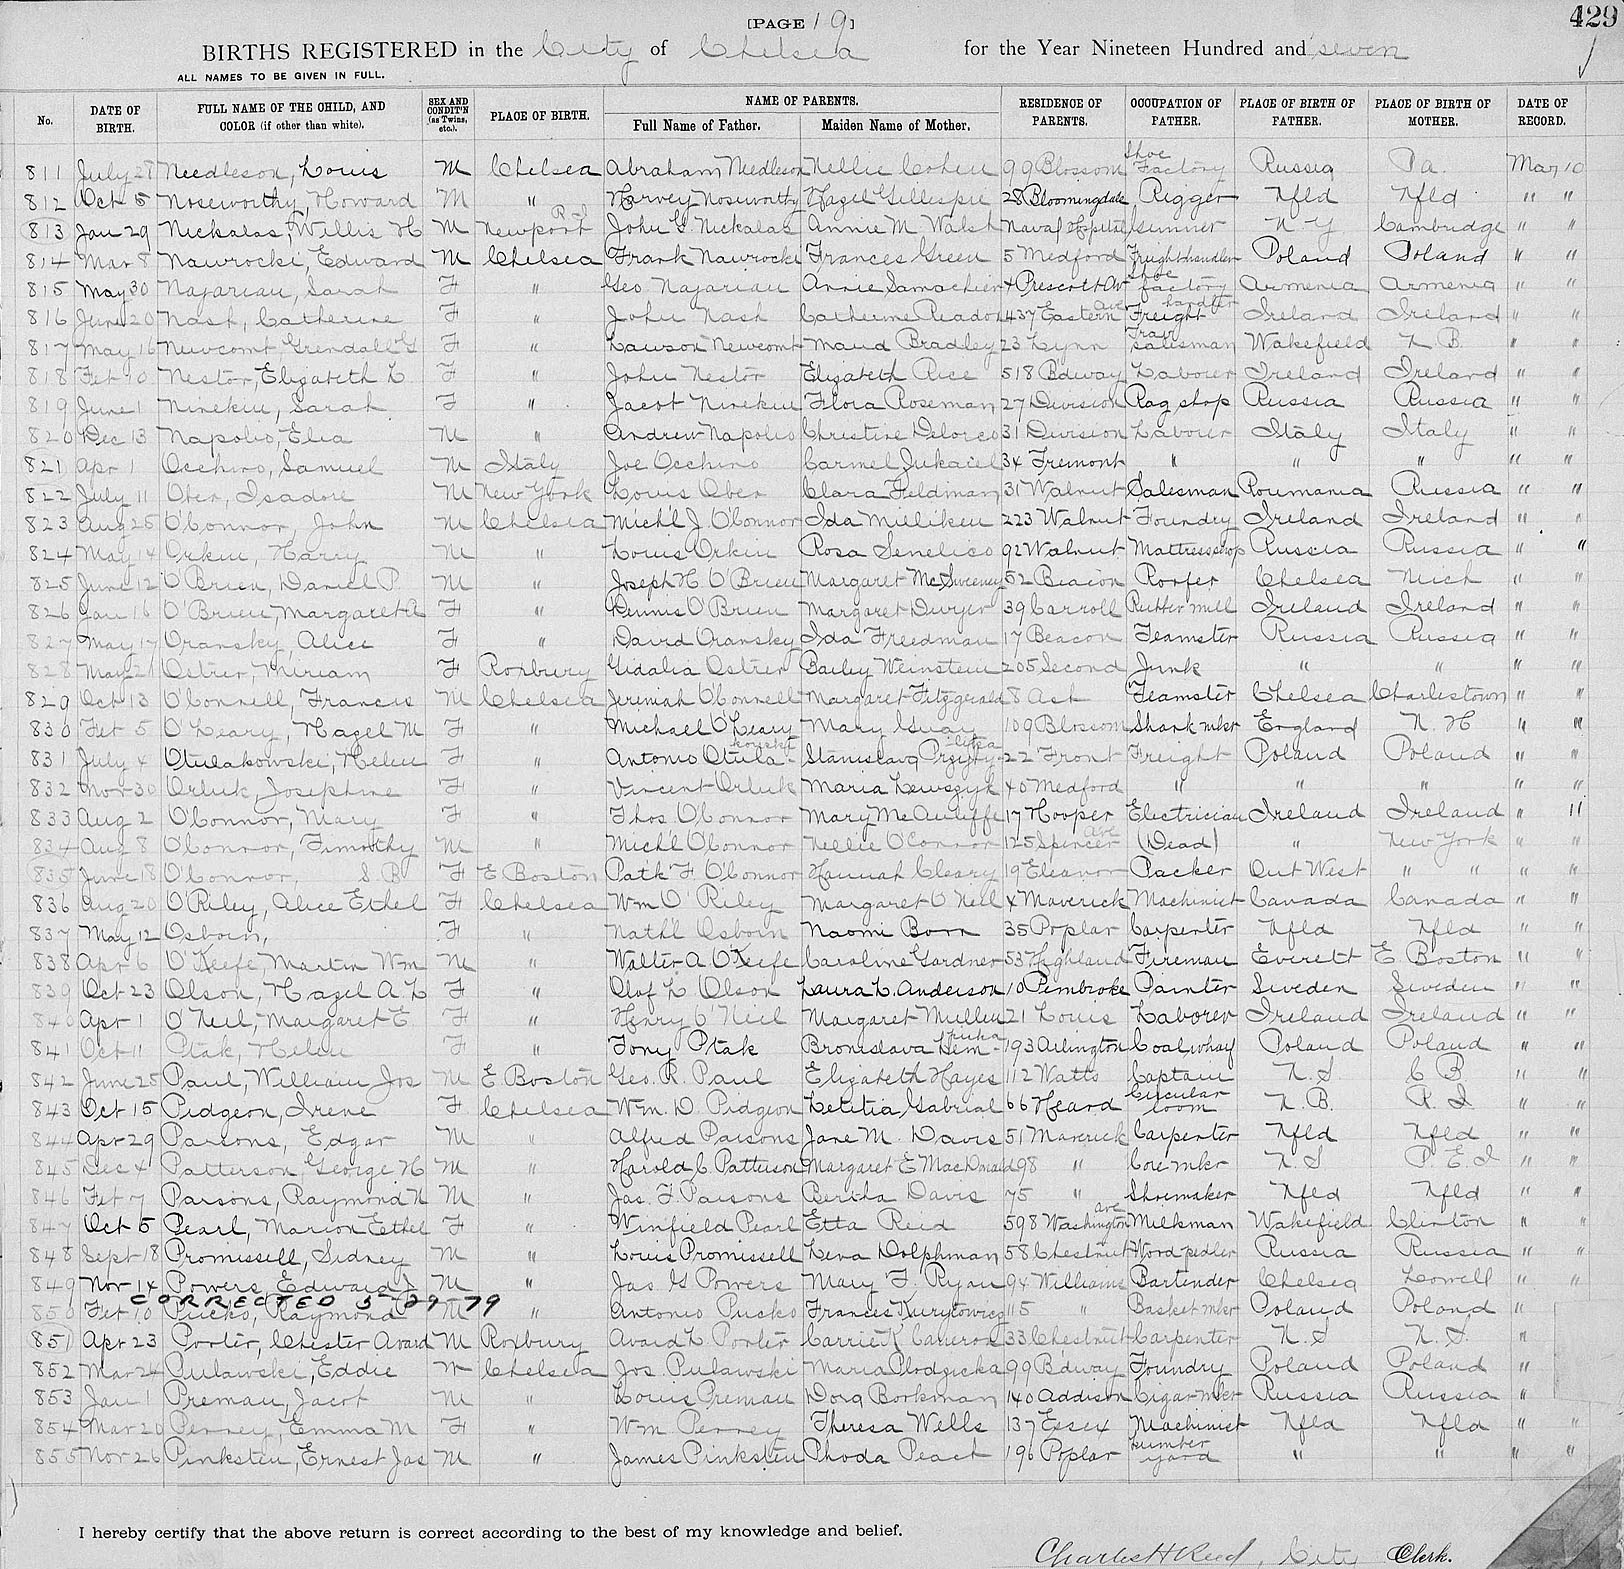 [PAGE 19]
429
BIRTHS REGISTERED in the City of Chelsea for the Year Nineteen Hundred and seven
ALL NAMES TO BE GIVEN IN FULL.
No. DATE OF BIRTH. FULL NAME OF THE CHILD, AND COLOR (if other than white). SEX AND CONDIT'N (as Twins, etc.). PLACE OF BIRTH. NAME OF PARENTS. Full Name of Father. Maiden Name of Mother. RESIDENCE OF PARENTS. OCCUPATION OF FATHER. PLACE OF BIRTH OF FATHER. PLACE OF BIRTH OF MOTHER. DATE OF RECORD.
811 July 28 Needleson, Louis M Chelsea Abraham Needleson Nellie Cohen 99 Blossom Shoe Factory Russia Pa. Mar 10
812 Oct 5 Noseworthy, Howard M " Harvey Noseworthy Hazel Gillespie 28 Bloomingdale Rigger Nfld Nfld " "
813 Jan 29 Nickalas, Willis H M Newport R.I. John G Nickalas Annie M Walsh Naval Hospital Gunner N Y Cambridge " "
814 Mar 8 Nawrocki, Edward M Chelsea Frank Nawrocki Frances Green 5 Medford Freighthandler Poland Poland " "
815 May 30 Najarian, Sarah F " Geo Najarian Annie Samachian 4 Prescott Av Shoe factory Armenia Armenia " "
816 June 20 Nash, Catherine F " John Nash Catherine Reardon 437 Eastern Ave Freight handler Ireland Ireland " "
817 May 16 Newcomt Grendall G F " Lawson Newcomt Maud Bradley 23 Lynn Trav salesman Wakefield N. B. " "
818 Feb 10 Nestor, Elizabeth L F " John Nestor Elizabeth Rice 518 Bdway Laborer Ireland Ireland " "
819 June 1 Ninekin, Sarah F " Jacob Ninekin Flora Roseman 27 Division Rag shop Russia Russia " "
820 Dec 13 Napolio, Elia M " Andrew Napolio Christine Delorco 31 Division Laborer Italy Italy " "
821 Apr 1 Occhino, Samuel M Italy Joe Occhino Carmel Jukaiel 34 Fremont " " " " "
822 July 11 Ober, Isadore M New York Louis Ober Clara Feldman 31 Walnut Salesman Roumania Russia " "
823 Aug 25 O'Connor, John M Chelsea Mich'l J. O'Connor Ida Milliken 223 Walnut Foundry Ireland Ireland " "
824 May 14 Orkin, Harry M " Louis Orkin Rosa Senelico 92 Walnut Mattress shop Russia Russia " "
825 June 12 O'Brien, Daniel P. M " Joseph H. O'Brien Margaret McSweeney 52 Beacon Roofer Chelsea Mich " "
826 Jan 16 O'Brien, Margaret A F " Dennis O'Brien Margaret Dwyer 39 Carroll Rubber mill Ireland Ireland " "
827 May 17 Oransky, Alice F " David Oransky Ida Freedman 17 Beacon Teamster Russia Russia " "
828 May 21 Ostrer, Miriam F Roxbury Gidalia Ostrer Bailey Weinstein 205 Second Junk " " " "
829 Oct 13 O'Connell, Francis M Chelsea Jeremiah O'Connell Margaret Fitzgerald 8 Ash Teamster Chelsea Charlestown " "
830 Feb 5 O'Leary, Hazel M F " Michael O'Leary Mary Guay 109 Blossom Shank mkr England N. H " "
831 July 4 Otulakowski, Helen F " Antonio Otulakowski Stanislava 22 Front Freight Poland Poland " "
832 Nov 30 Orluk, Josephine F " Vincent Orluk Maria Lewszyk 40 Medford " " " " "
833 Aug 2 O'Connor, Mary F " Thos O'Connor Mary McAuliffe 17 Hooper Electrician Ireland Ireland " 11
834 Aug 8 O'Connor, Timothy M " Mich'l O'Connor Nellie O'Connor 125 Spencer Ave (Dead) " New York " "
835 June 18 O'Connor, S. B F E Boston Patk F O'Connor Hannah Cleary 19 Eleanor Packer Out West " " " "
836 Aug 20 O'Riley, Alice Ethel F Chelsea Wm O'Riley Margaret O'Neil 4 Maverick Machinist Canada Canada " "
837 May 12 Osborn, F " Nath'l Osborn Naomi Born 35 Poplar Carpenter Nfld Nfld " "
838 Apr 6 O'Keefe, Martin Wm M " Walter A O'Keefe Caroline Gardner 53 Highland Fireman Everett E. Boston " "
839 Oct 23 Olson, Hazel A. L F " Olof L Olson Laura L. Anderson 10 Pembroke Painter Sweden Sweden " "
840 Apr 1 O'Neil, Margaret E F " Henry O'Neil Margaret Mullen 21 Louis Laborer Ireland Ireland " "
841 Oct 11 Ptak, Helen F " Tony Ptak Bronislava 193 Arlington Coal whaf Poland Poland " "
842 June 25 Paul, William Jos M E. Boston Geo. R. Paul Elizabeth Hayes 112 Watts Captain N. S C B " "
843 Oct 15 Pidgeon, Irene F Chelsea Wm. D. Pidgeon Letitia Gabrial 66 Heard Circular loom N. B. R. I. " "
844 Apr 29 Parsons, Edgar M " Alfred Parsons Jane M. Davis 51 Maverick Carpenter Nfld Nfld " "
845 Dec 4 Patterson George H M " Harold C. Patterson Margaret E MacDonald 98 " Core mkr N. S P. E. I " "
846 Feb 7 Parsons, Raymond N M " Jas. F. Parsons Bertha Davis 75 " Shoemaker Nfld Nfld " "
847 Oct 5 Pearl, Marion Ethel F " Winfield Pearl Etta Reid 598 Washington Ave Milkman Wakefield Clinton " "
848 Sept 18 Promissell, Sidney M " Louis Promissell Lena Dolphman 58 Chestnut Wood pedler Russia Russia " "
849 Nov 14 Powers, Edward J M " Jas G Powers Mary F. Ryan 94 Williams Bartender Chelsea Lowell " "
CORRECTED 5-29-79
850 Feb 10 Pucko, Raymond M " Antonio Pucko Frances Kurytowicz 115 " Basket mkr Poland Poland "
851 Apr 23 Porter, Chester Avard M Roxbury Avard L Porter Carrie K Cameron 33 Chestnut Carpenter N. S N. S. "
852 Mar 24 Pulawski, Eddie M Chelsea Jos. Pulawski Maria Plodzicka 99 B'dway Foundry Poland Poland "
853 Jan 1 Preman, Jacob M " Louis Preman Dora Bookman 140 Addison Cigar mkr Russia Russia "
854 Mar 20 Penney, Emma M F " Wm Penney Theresa Wells 137 Essex Machinist Nfld Nfld " "
855 Nov 26 Pinksten, Ernest Jas M " James Pinksten Rhoda Peach 196 Poplar Lumber yard " " " "
I hereby certify that the above return is correct according to the best of my knowledge and belief.
Charles H Reed, City Clerk.